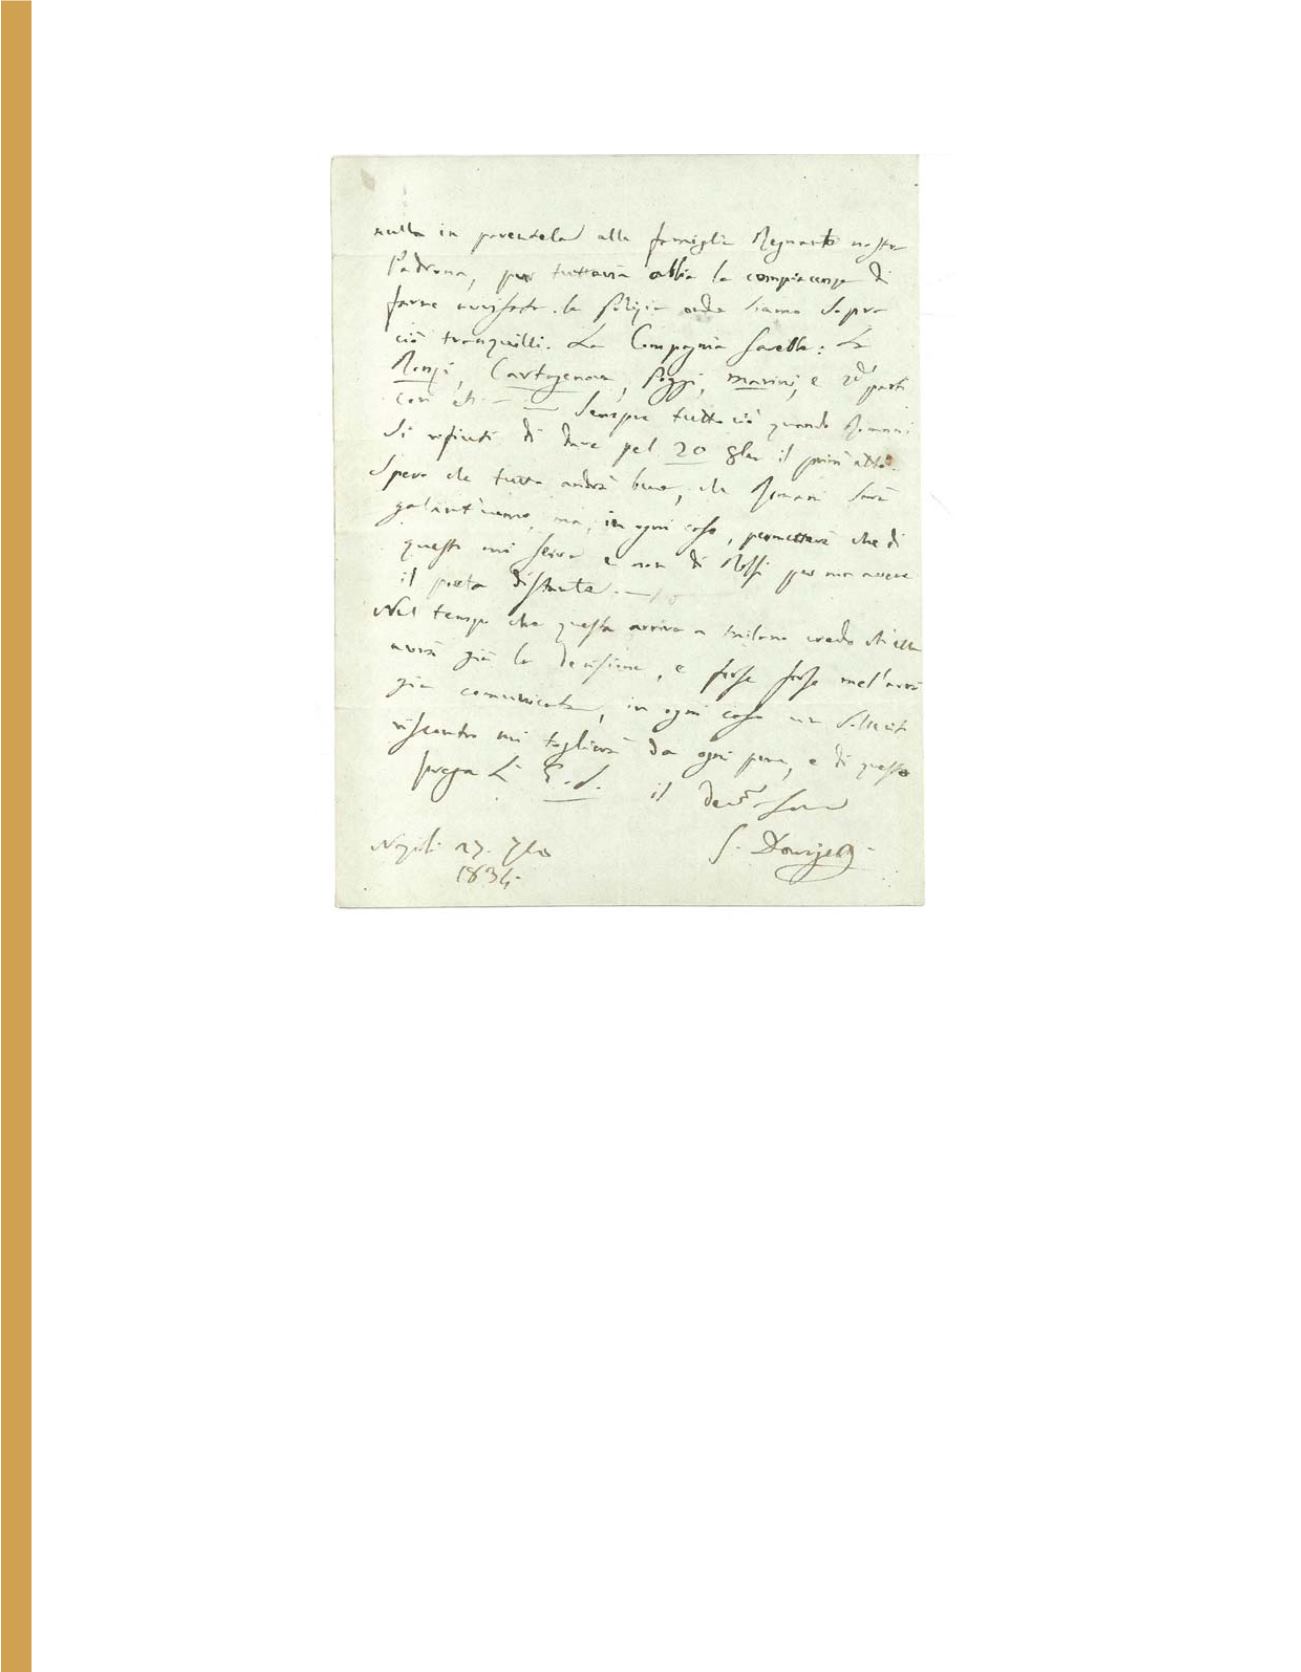 nulla in parentela alla famiglia Regnante nostra
Padrona, pur tuttavia abbia la compiacenza di
farne avvisata la Polizia onde siamo sopra
ciò tranquilli. La Compagnia sarebbe: La
Ronzi, Cartagenova, Poggi, Marini, e 2de parti
con
Sempre tutto ciò quando Romani
si rifiuti di dare pel 20 8bre il prim'atto.
Spero che tutto andrà bene, che Romani sarà
galant'uomo, ma, in ogni caso, permetterà che di
questi mi serva e non di Rossi per non avere
il poeta distante.
Nel tempo che questa arriva a Milano credo ch'ella
avrà già la decisione, e forse forse mel'avrà
già comunicata, in ogni caso un sollecito
riscontro mi toglierà da ogni pena, e di questo
prega L' E. S. il Devmo Servo
Napoli 27. 7bre G. Donizetti
1834